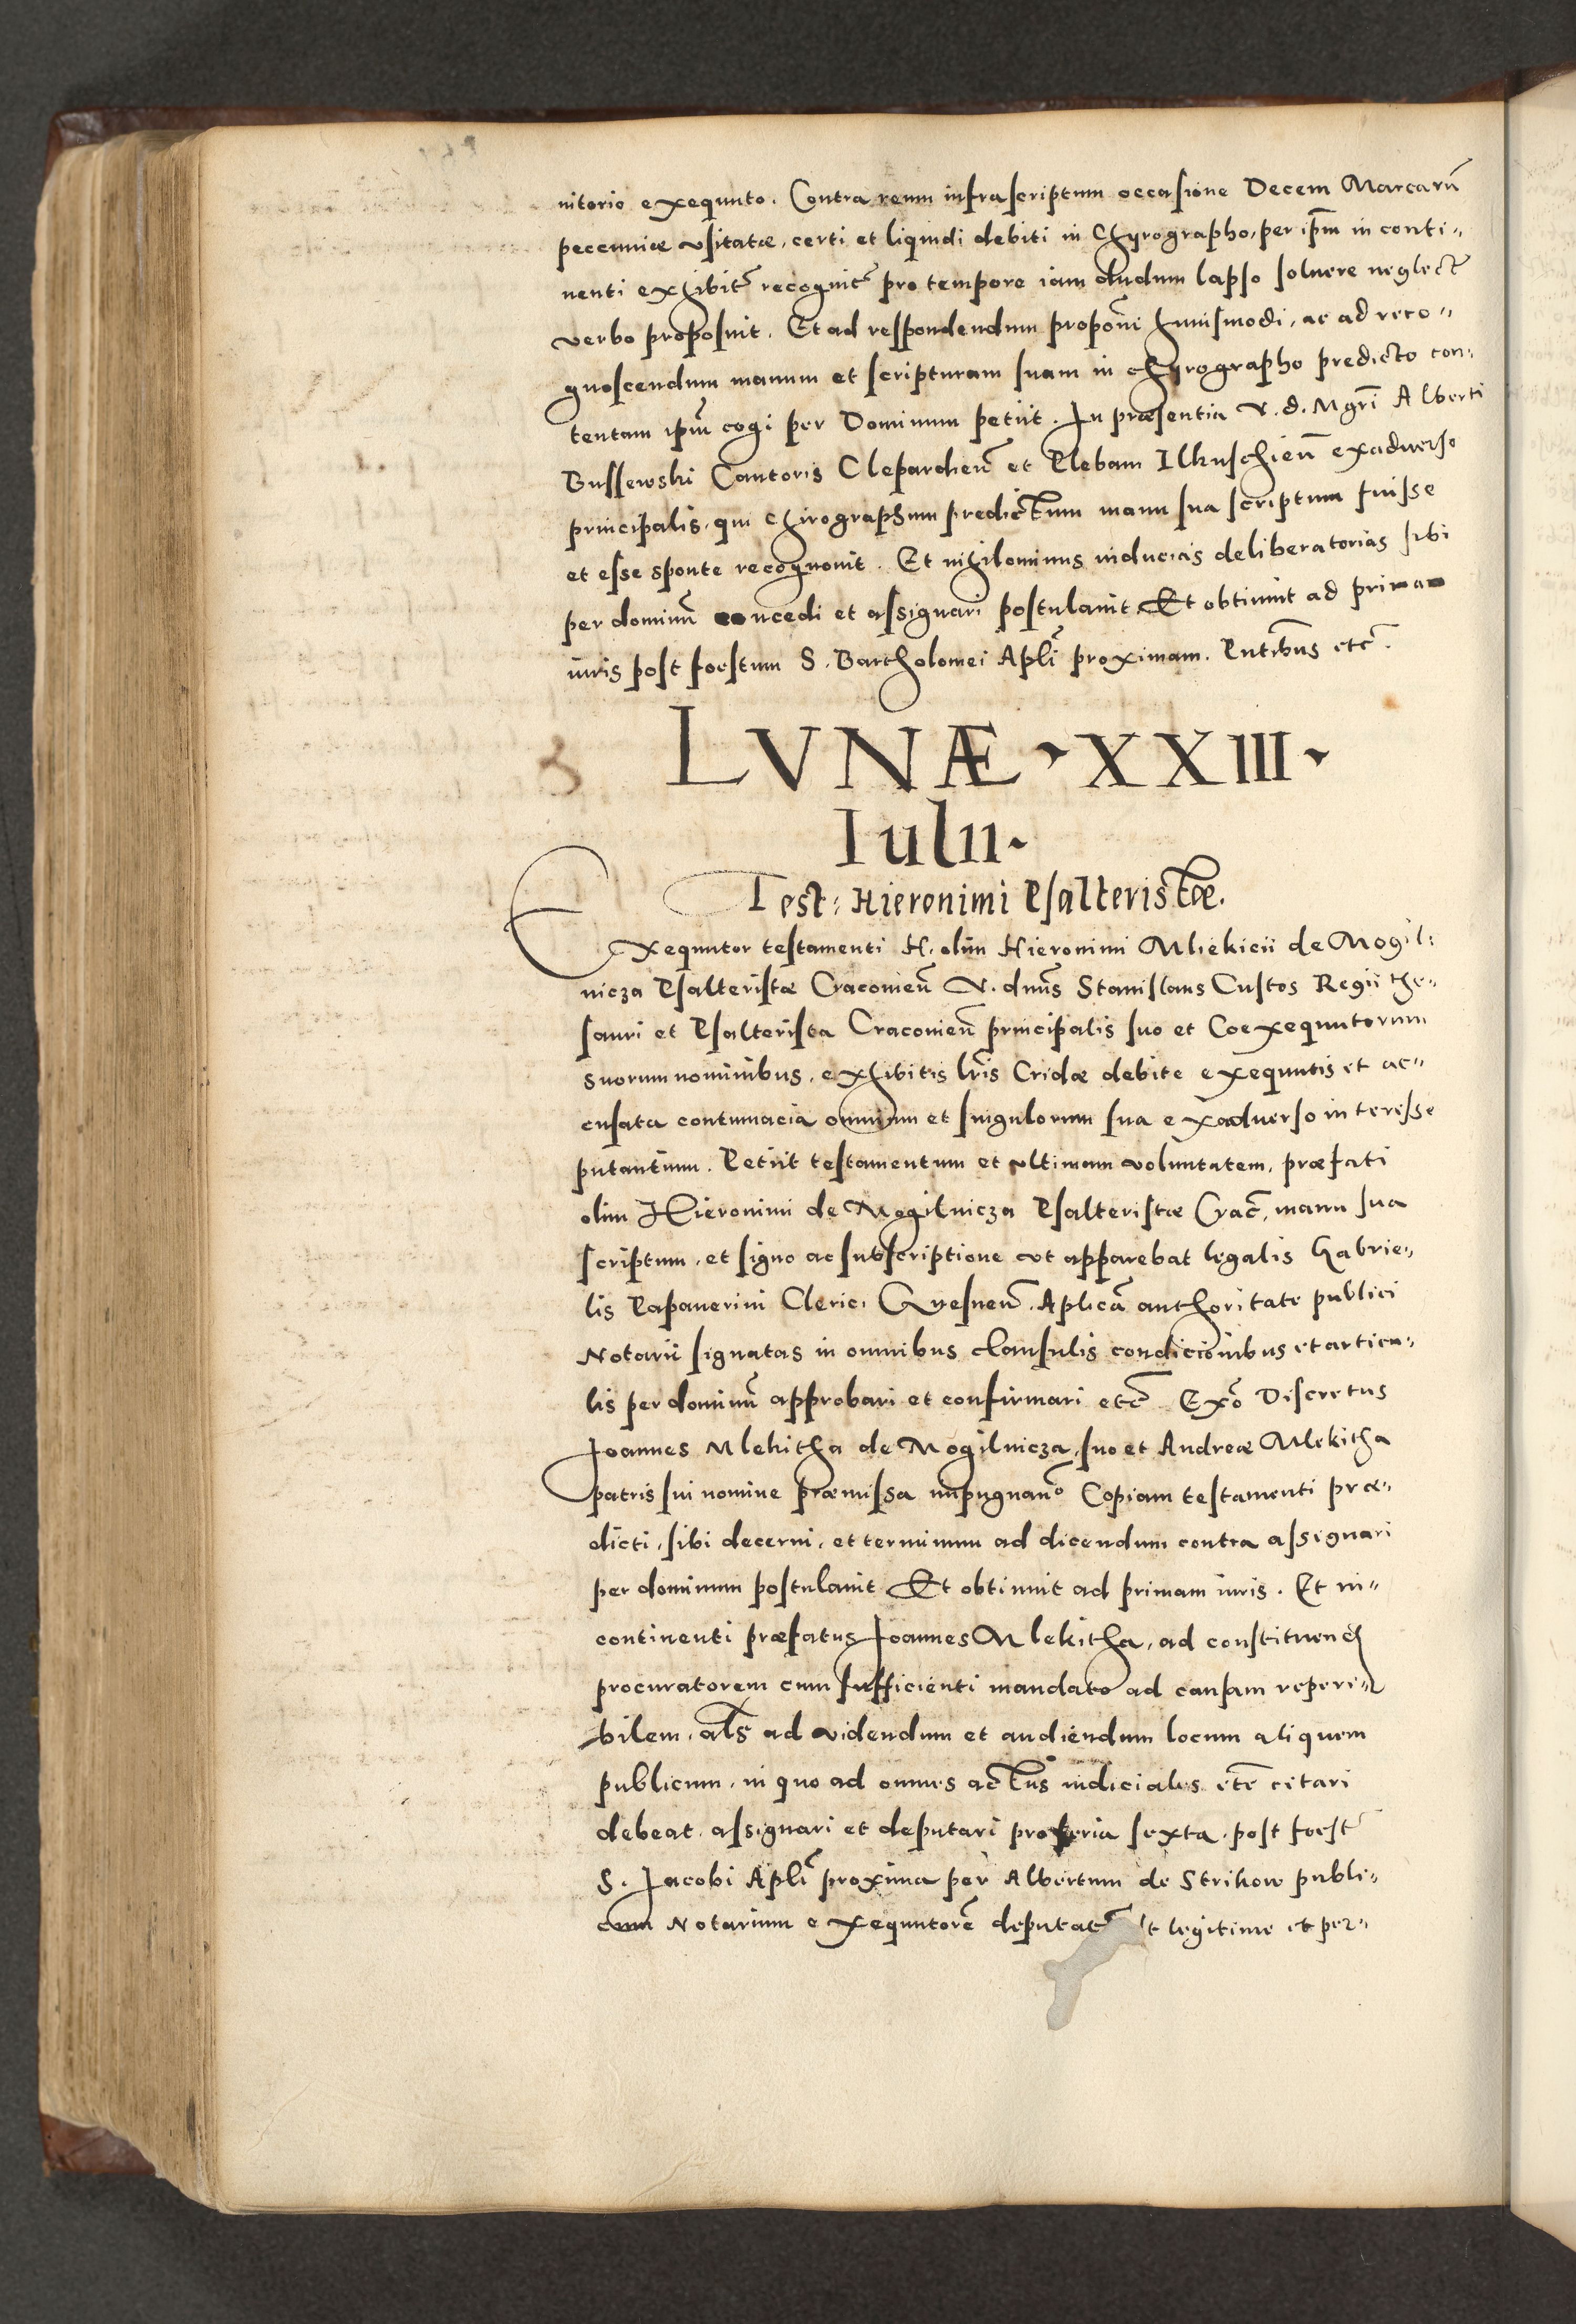 nitorio exequuto. Contra reum infrascriptum occasione Decem Marcarū
pecuniæ usitatæ, certi et liquidi debiti in Chyrographo, per ip̄m in conti„
nenti exhibit̄ recognit̄ pro tempore iam dudum lapso soluere neglect̄
verbo proposuit. Et ad respondendum propōni huiusmodi, ac ad reco„
gnoscendum manum et scripturam suam in chyrographo predicto con„
tentam ip̄m cogi per Dominum petiit. In præsentia V. d. Mgr̄i Alberti
Bussewski Cantoris Clepardien̄ et Plebani Ilkuschien̄ exadverso
principalis, qui chirographum predictum manu sua scriptum fuisse
et esse sponte recognovit. Et nihilominus inducias deliberatorias sibi
per dominū concedi et assignari postulavit. Et obtinuit ad primam
iuris post foestum S. Bartholomei Apl̄i proximam. Pntibus etc̄.
LVNÆ · XXIII ·
Iulii ·
Test: Hieronimi Psalteristæ.
Exequutor testamenti H. olim Hieronimi Mliekicii de Mogil„
nicza Psalteristæ Cracovien̄ V. dnūs Stanislaus Custos Regii the„
sauri et Psalterista Cracovien̄ principalis suo et Coexequutorum
suorum nominibus, exhibitis lr̄is Cridæ debite exequutis et ac„
cusata contumacia omnium et singulorum sua exadverso interesse
putantium. Petiit testamentum et ultimam voluntatem, præfati
olim Hieronimi de Mogilnicza Psalteristæ Crac̄, manu sua
scriptum, et signo ac subscriptione ut apparebat legalis Gabrie„
lis Papaverini Clerici Gnesnen̄. Aplicā authoritate publici
Notarii signatas in omnibus clausulis condicionibus et articu„
lis per dominū approbari et confirmari etc̄ Exō Discretus
Joannes Mlekitha de Mogilnicza, suo et Andreæ Mlekitha
patris sui nomine præmissa impugnan̄o Copiam testamenti præ„
dicti, sibi decerni, et terminum ad dicendum contra assignari
per dominum postulavit Et obtinuit ad primam iuris. Et in„
continenti præfatus Joannes Mlekitha, ad constituend
procuratorem cum sufficienti mandato ad causam reperi„
bilem, al̄s ad videndum et audiendum locum aliquem
publicum, in quo ad omnes actus iudiciales etc̄ citari
debeat, assignari et deputari pro feria sexta, post foest̄
S. Jacobi Apl̄i proxima per Albertum de Strikow publi„
cum Notarium exequutorē deputat̄ legitime et per„